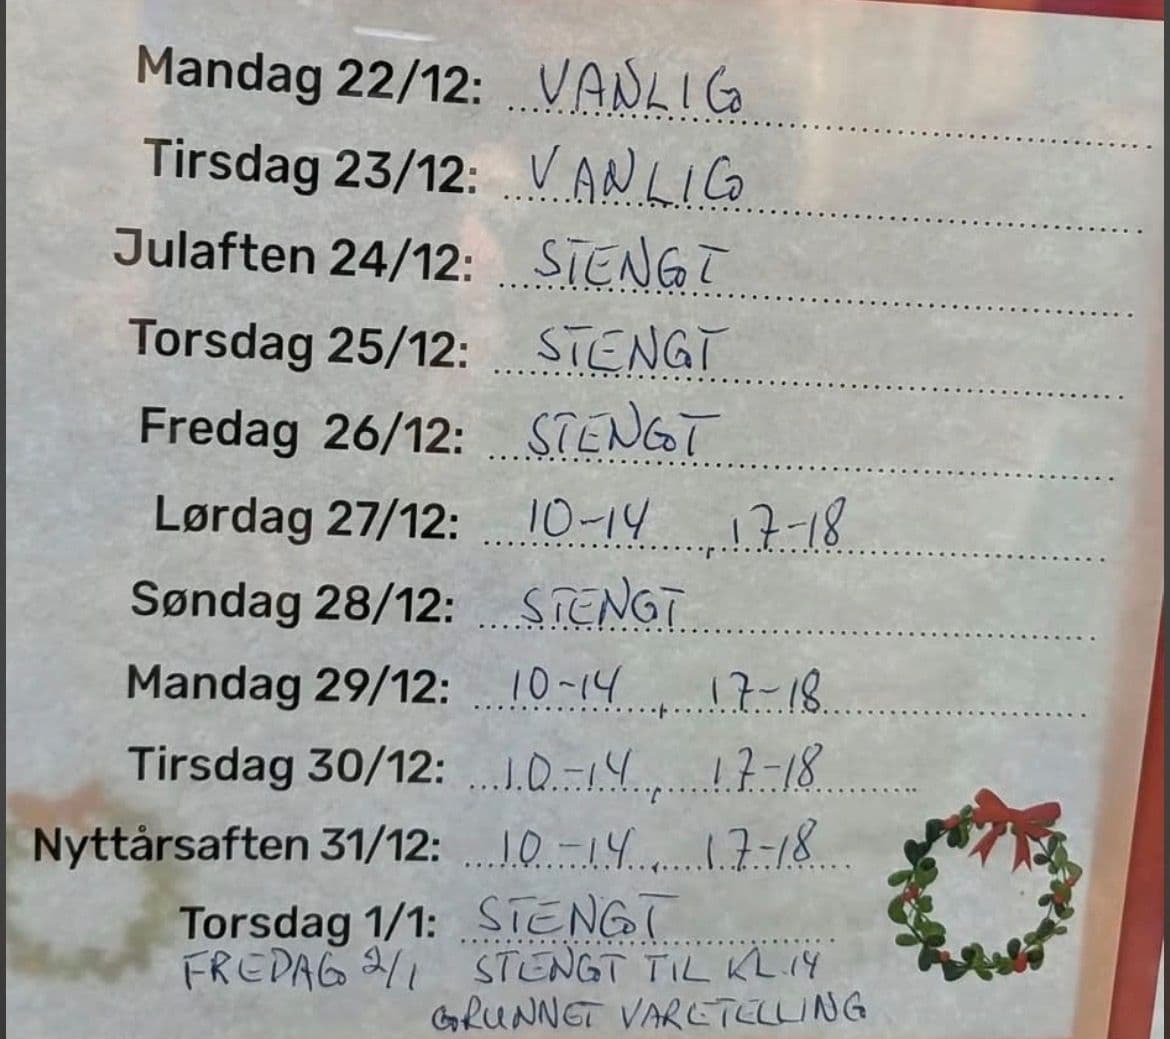 Mandag 22/12: VANLIG
Tirsdag 23/12: VANLIG
Julaften 24/12: STENGT
Torsdag 25/12: STENGT
Fredag 26/12: STENGT
Lørdag 27/12: 10-14, 17-18
Søndag 28/12: STENGT
Mandag 29/12: 10-14, 17-18
Tirsdag 30/12: 10-14, 17-18
Nyttårsaften 31/12: 10-14, 17-18
Torsdag 1/1: STENGT
FREDAG 2/1 STENGT TIL KL.14
GRUNNET VARETELLING